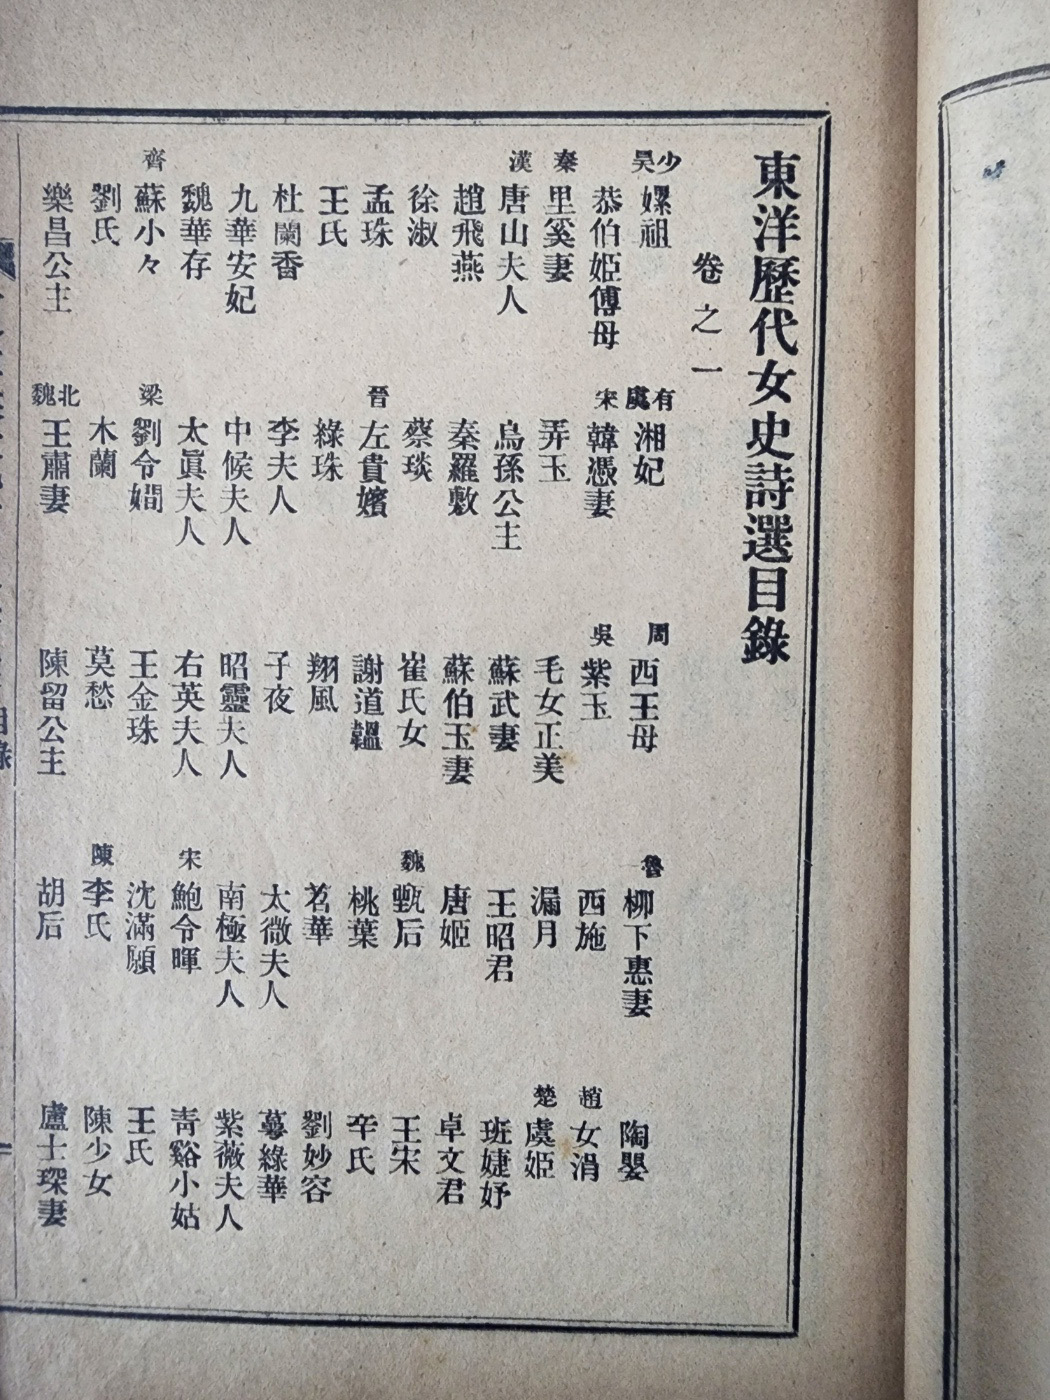 東洋歷代女史詩選目錄
卷之一
少昊 嫘祖 有虞 湘妃 周 西王母 魯 柳下惠妻 陶嬰
恭伯姬傅母 宋 韓憑妻 吳 紫玉 西施 趙 女涓
秦 里奚妻 弄玉 毛女正美 漏月 楚 虞姬
漢 唐山夫人 烏孫公主 蘇武妻 王昭君 班婕妤
趙飛燕 秦羅敷 蘇伯玉妻 唐姬 卓文君
徐淑 蔡琰 崔氏女 魏 甄后 王宋
孟珠 晉 左貴嬪 謝道韞 桃葉 辛氏
王氏 綠珠 翔風 茗華 劉妙容
杜蘭香 李夫人 子夜 太微夫人 萼綠華
九華安妃 中候夫人 昭靈夫人 南極夫人 紫薇夫人
魏華存 太眞夫人 右英夫人 宋 鮑令暉 靑谿小姑
齊 蘇小々 梁 劉令嫺 王金珠 沈滿願 王氏
劉氏 木蘭 莫愁 陳 李氏 陳少女
樂昌公主 北魏 王肅妻 陳留公主 胡后 盧士琛妻
目錄